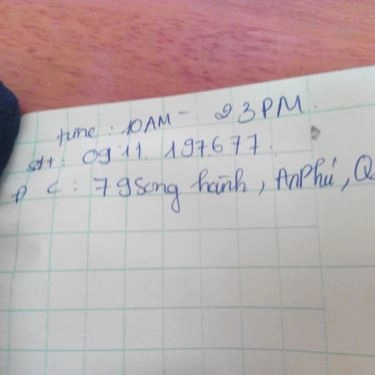 time: 10AM - 23PM.
sđt: 0911.197.677.
Đ C: 79 Song hành, An Phú, Q